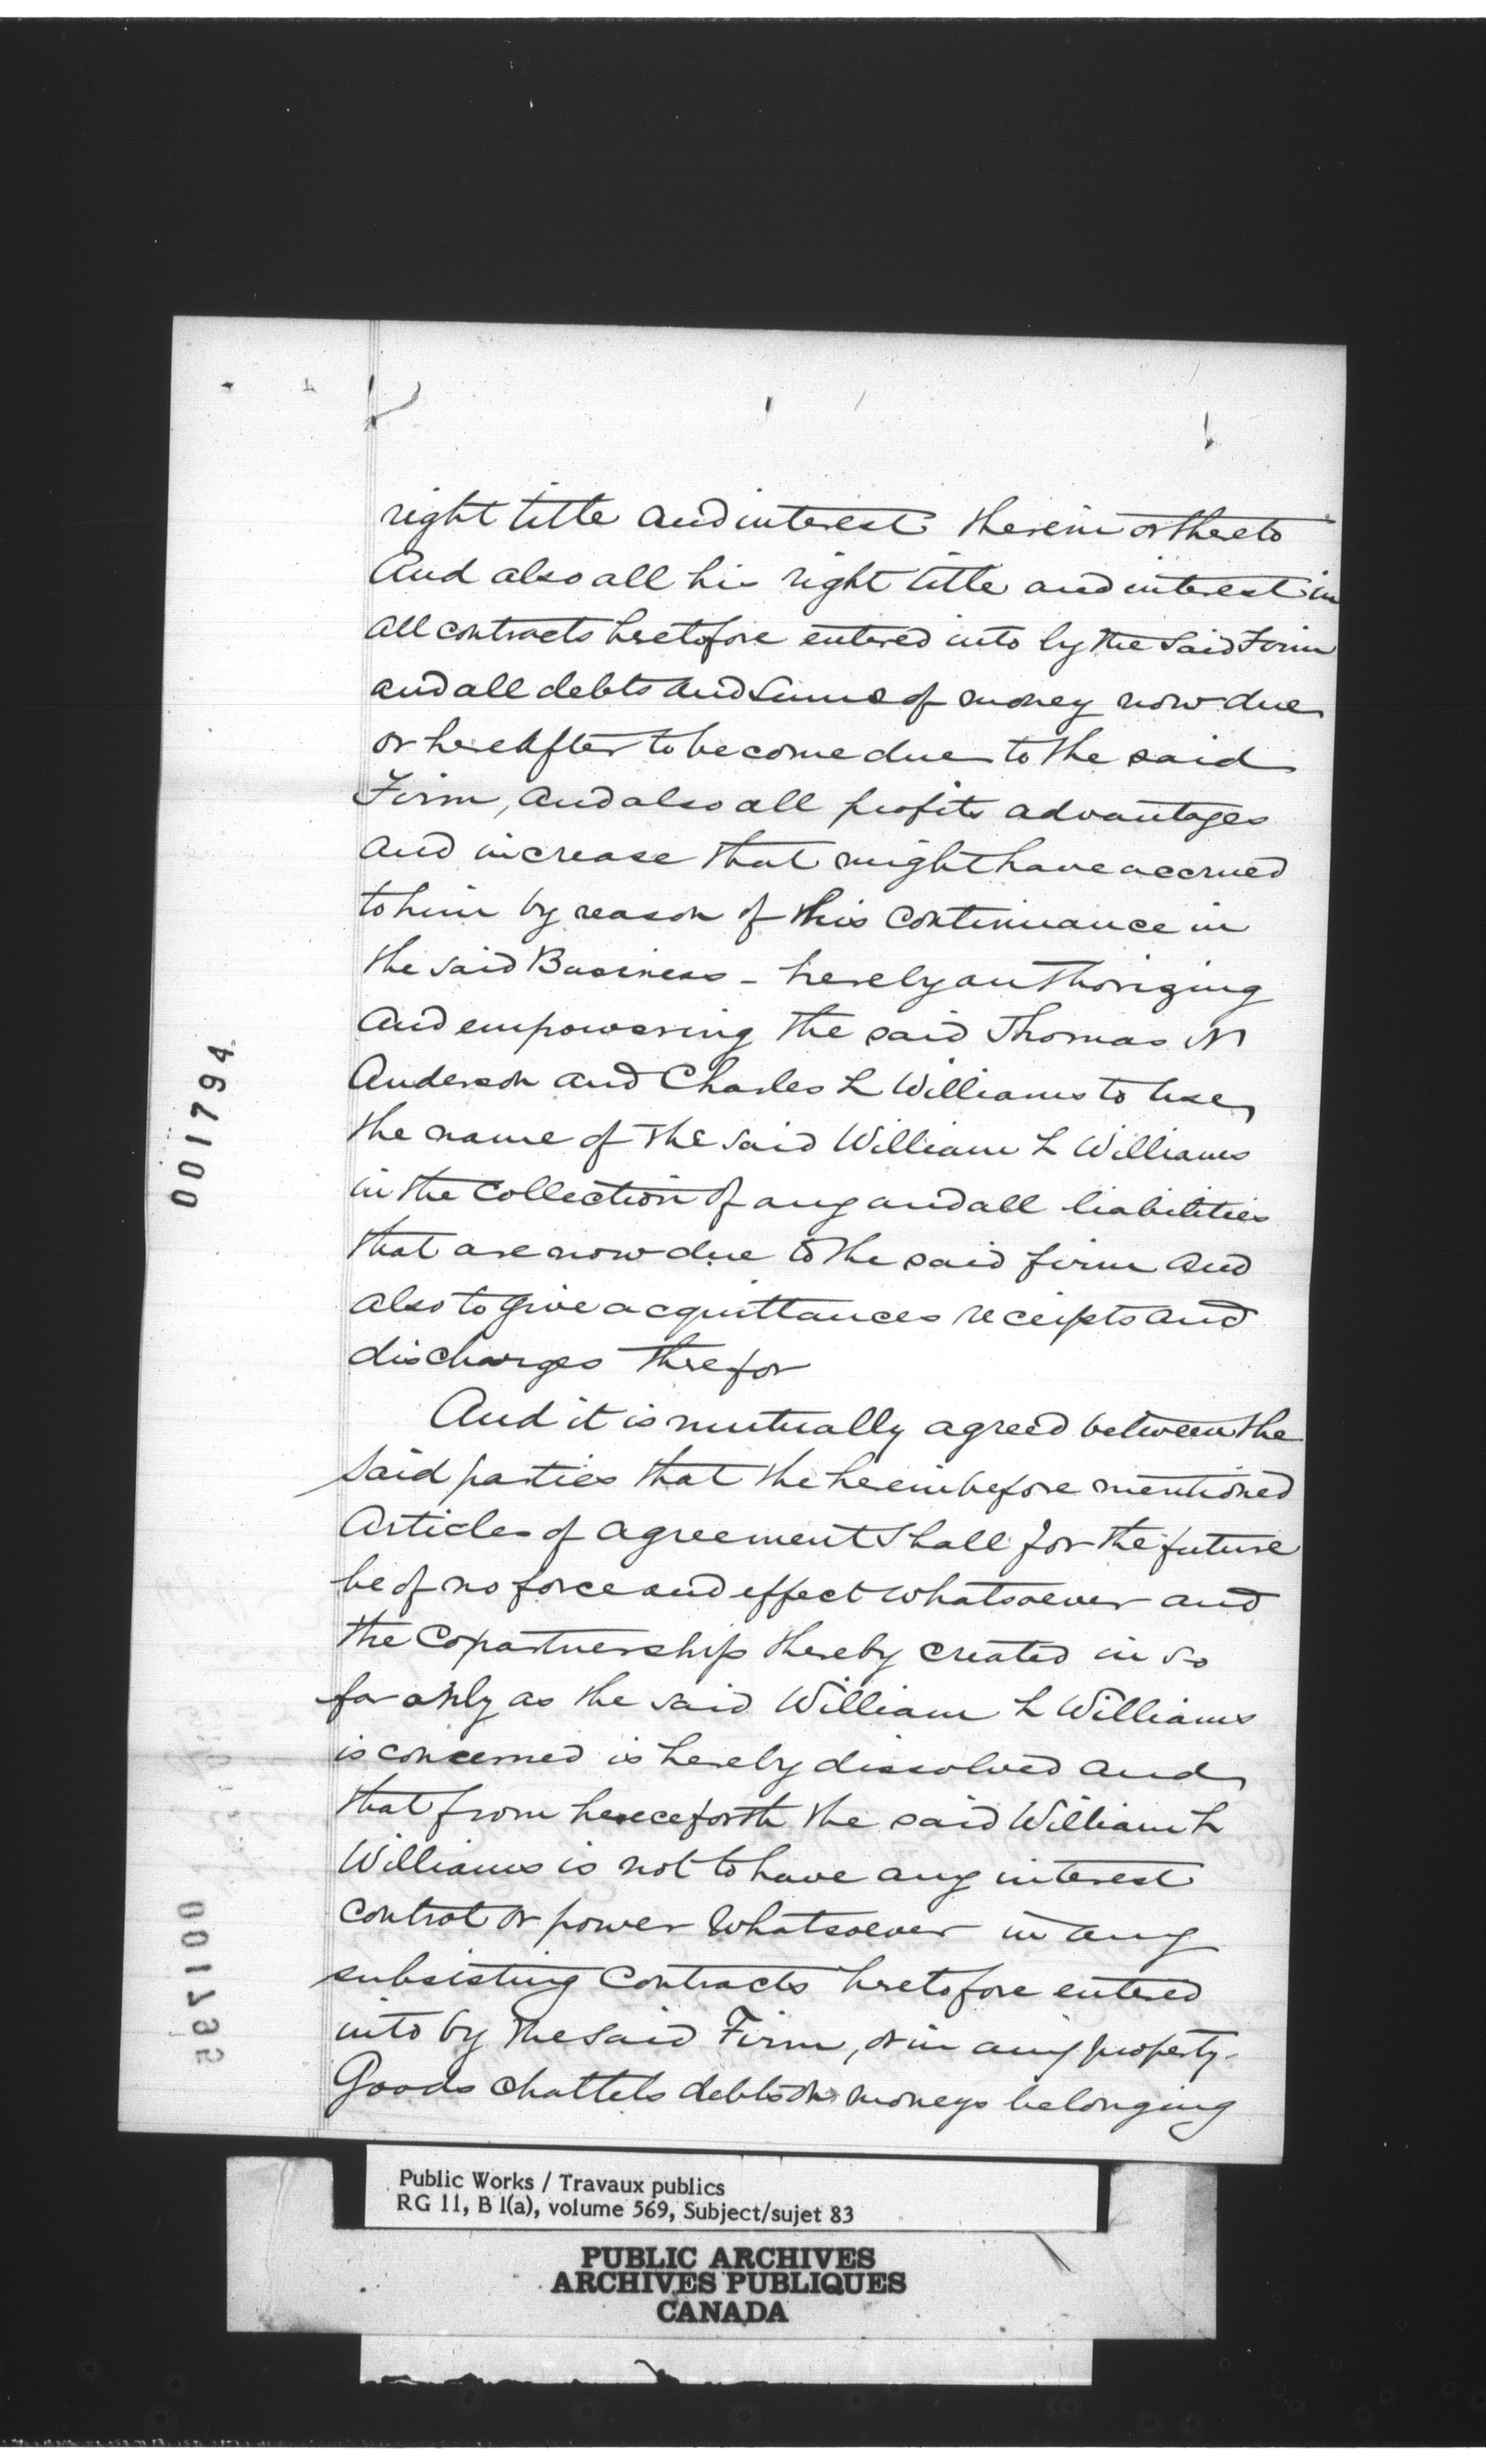 right title and interest therein or thereto
And also all his right title and interest in
all contracts heretofore entered into by the Said Firm
and all debts and Sums of money now due
or hereafter to become due to the said
Firm, and also all profits advantages
and increase that might have accrued
to him by reason of this continuance in
the said Business - hereby authorizing
and empowering the said Thomas M
Anderson and Charles L Williams to use
the name of the said William L Williams
in the collection of any and all liabilities
that are now due to the said firm and
also to give acquittances receipts and
discharges therefor
And it is mutually agreed between the
said parties that the hereinbefore mentioned
Articles of agreement Shall for the future
be of no force and effect whatsoever and
the Copartnership thereby created in so
far only as the said William L Williams
is concerned is hereby dissolved and
that from henceforth the said William L
Williams is not to have any interest
control or power whatsoever in any
subsisting Contracts heretofore entered
into by the said Firm, or in any property
Goods chattels debts or moneys belonging
001794
001795
Public Works / Travaux publics
RG 11, B 1(a), volume 569, Subject/sujet 83
PUBLIC ARCHIVES
ARCHIVES PUBLIQUES
CANADA